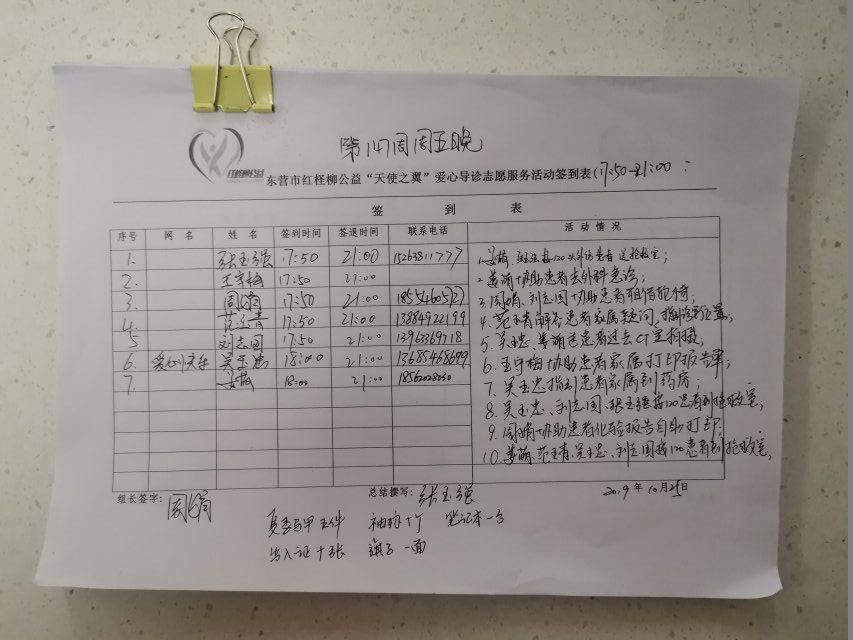 第147周周五晚
东营市红柽柳公益“天使之翼”爱心导诊志愿服务活动签到表(17:50-21:00
签 到 表
序号 网 名 姓 名 签到时间 签退时间 联系电话 活动情况
1. 张玉强 17:50 21:00 15263811777
2. 王守梅 17:50 21:00
3. 周娟 17:50 21:00
4. 范玉青 17:50 21:00 13884922199
5 刘志国 17:50 21:00 13963369718
6. 吴玉忠 18:00 21:00 13685468699
7. 姜萌 18:00 21:00
1. 姜萌、张玉强接120外伤患者送抢救室;
2 姜萌协助患者去外科急诊;
3. 周娟、刘志国协助患者租借轮椅;
4. 范玉青解答患者家属疑问,指引位置;
5. 吴玉忠、姜萌送患者过去CT室拍摄,
6. 王守梅协助患者家属打印报告单;
7. 吴玉忠指引患者家属到药房;
8. 吴玉忠、刘志国、张玉强接120患者到抢救室;
9. 周娟协助患者化验报告自助打印;
10. 姜萌、范玉青、吴玉忠、刘志国接120患者到抢救室,
组长签字: 周娟 总结撰写: 张玉强 2019年10月25日
夏季马甲五件 袖标十个 笔记本一个
出入证十张 旗子一面